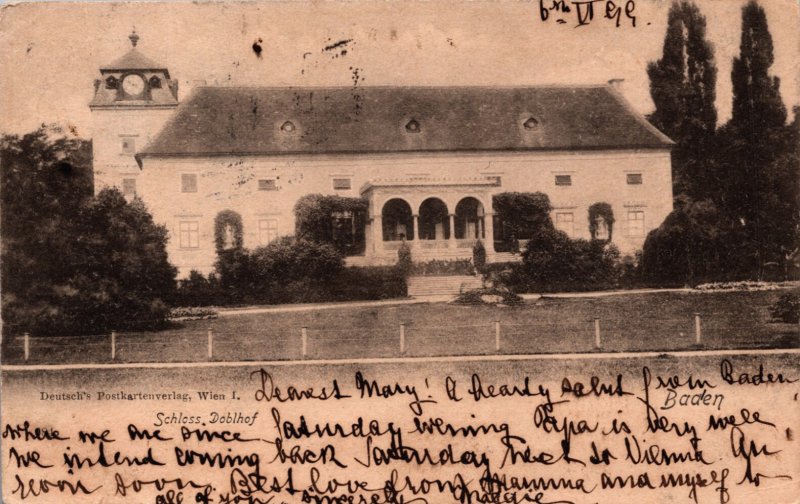 6th VI 99.
Deutsch's Postkartenverlag, Wien I.
Schloss Doblhof
Baden
Dearest Mary! A hearty salut from Baden
where we are since Saturday evening Papa is very well
we intend coming back Saturday next to Vienna
soon. Best love from Mamma and myself to
all of you, sincerely Maggie